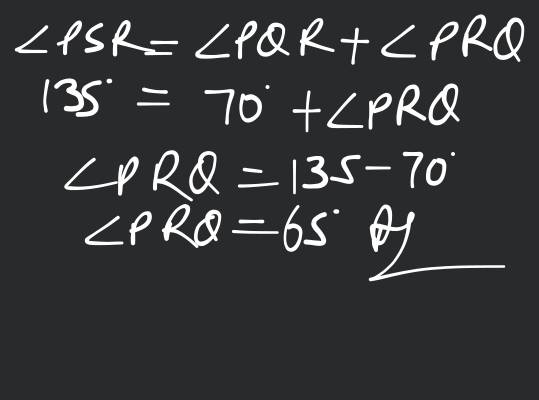 ∠PSR = ∠PQR + ∠PRQ
135° = 70° + ∠PRQ
∠PRQ = 135 - 70°
∠PRQ = 65°